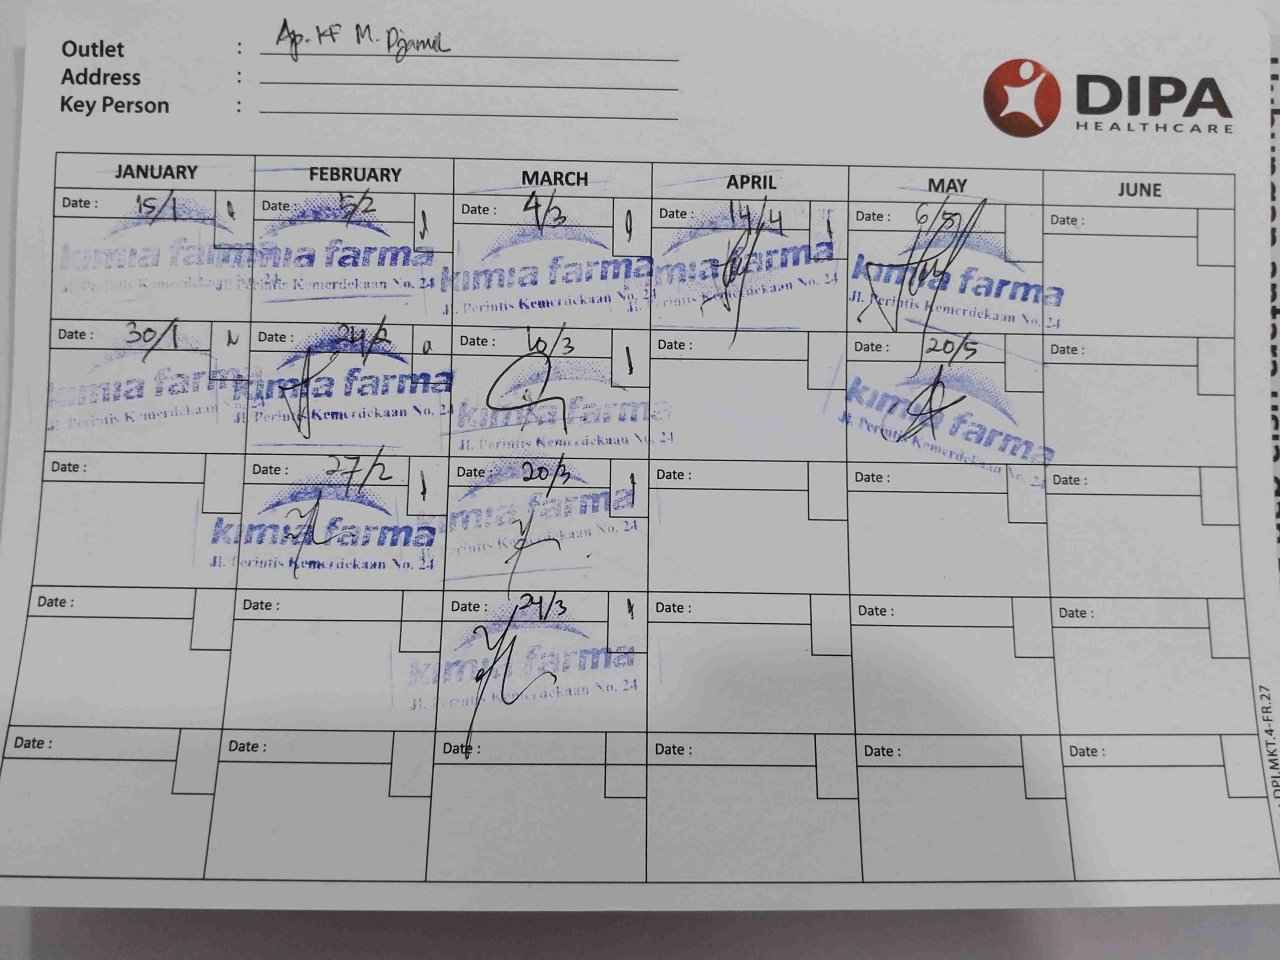 Outlet : Ap. KF M. Djamil
Address :
Key Person :
DIPA
HEALTHCARE
JANUARY FEBRUARY MARCH APRIL MAY JUNE
Date : 15/1 Date : 5/2 Date : 4/3 Date : 14/4 Date : 6/5 Date :
kimia farma kimia farma kimia farma kimia farma kimia farma
Jl. Perintis Kemerdekaan Jl. Perintis Kemerdekaan No. 24 Jl. Perintis Kemerdekaan No. 24 Perintis Kemerdekaan No. 24 Jl. Perintis Kemerdekaan No. 24
Date : 30/1 Date : 24/2 Date : 10/3 Date : Date : 20/5 Date :
kimia farma kimia farma kimia farma kimia farma
Jl. Perintis Kemerdekaan Jl. Perintis Kemerdekaan No. 24 Jl. Perintis Kemerdekaan No. 24 Jl. Perintis Kemerdekaan No. 24
Date : Date : 27/2 Date : 20/3 Date : Date : Date :
kimia farma kimia farma
Jl. Perintis Kemerdekaan No. 24 Perintis Kemerdekaan No. 24
Date : Date : Date : 24/3 Date : Date : Date :
kimia farma
Jl. Perintis Kemerdekaan No. 24
Date : Date : Date : Date : Date : Date :
DPI.MKT.4-FR.27